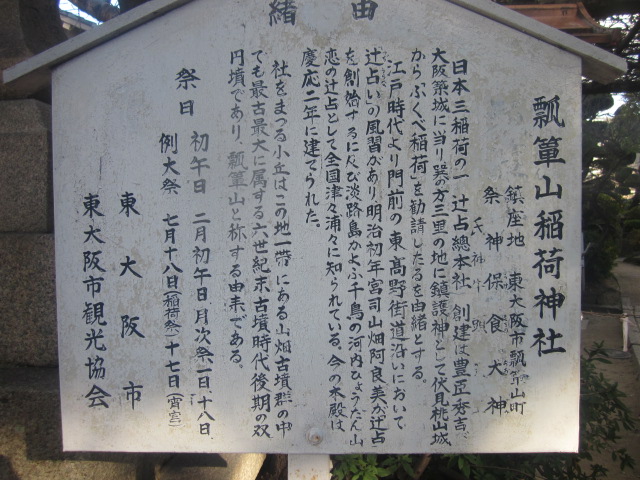 由緒
瓢箪山稲荷神社
鎮座地 東大阪市瓢箪山町
祭神 保食大神
日本三稲荷の一 辻占總本社 創建は豊臣秀吉、
大阪築城に当り巽の方三里の地に鎮護神として伏見桃山城
から「ふくべ稲荷」を勧請したるを由緒とする。
江戸時代より門前の東高野街道沿いにおいて
「辻占い」の風習があり、明治初年宮司山畑阿良美が辻占
を創始するに及び淡路島かよふ千鳥の河内ひょうたん山
恋の辻占として全国津々浦々に知られている。今の本殿は
慶応二年に建てられた。
社をまつる小丘はこの地一帯にある山畑古墳群の中
でも最古最大に属する六世紀末古墳時代後期の双
円墳であり、瓢箪山と称する由来である。
祭日 初午日 二月初午日 月次祭 一日、十八日
例大祭 七月十八日(稲荷祭)十七日(宵宮)
東大阪市
東大阪市観光協会